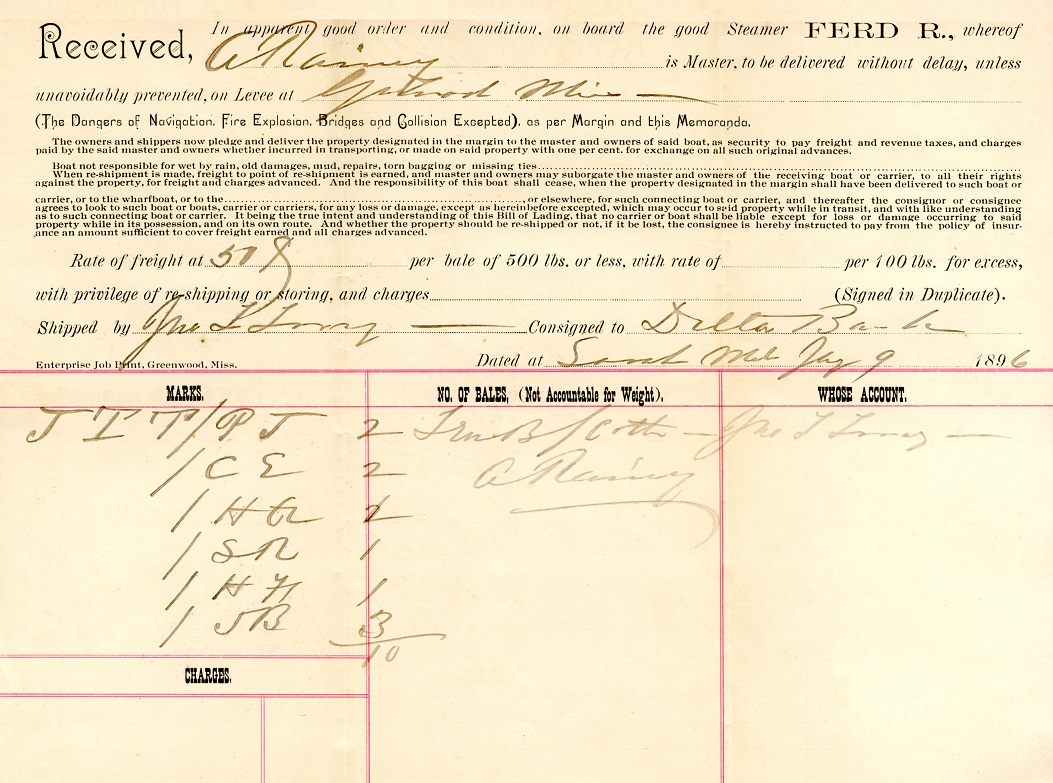 Received, In apparent good order and condition, on board the good Steamer FERD R., whereof
A Rainey is Master, to be delivered without delay, unless
unavoidably prevented, on Levee at
(The Dangers of Navigation, Fire Explosion, Bridges and Collision Excepted). as per Margin and this Memoranda.
The owners and shippers now pledge and deliver the property designated in the margin to the master and owners of said boat, as security to pay freight and revenue taxes, and charges
paid by the said master and owners whether incurred in transporting, or made on said property with one per cent. for exchange on all such original advances.
Boat not responsible for wet by rain, old damages, mud, repairs, torn bagging or missing ties
When re-shipment is made, freight to point of re-shipment is earned, and master and owners may suborgate the master and owners of the receiving boat or carrier, to all their rights
against the property, for freight and charges advanced. And the responsibility of this boat shall cease, when the property designated in the margin shall have been delivered to such boat or
carrier, or to the wharfboat, or to the , or elsewhere, for such connecting boat or carrier, and thereafter the consignor or consignee
agrees to look to such boat or boats, carrier or carriers, for any loss or damage, except as hereinbefore excepted, which may occur to said property while in transit, and with like understanding
as to such connecting boat or carrier. It being the true intent and understanding of this Bill of Lading, that no carrier or boat shall be liable except for loss or damage occurring to said
property while in its possession, and on its own route. And whether the property should be re-shipped or not, if it be lost, the consignee is hereby instructed to pay from the policy of insur-
ance an amount sufficient to cover freight earned and all charges advanced.
Rate of freight at 50 per bale of 500 lbs. or less, with rate of per 100 lbs. for excess,
with privilege of re-shipping or storing, and charges (Signed in Duplicate).
Shipped by Jno Consigned to Delta Bank
Enterprise Job Print, Greenwood, Miss. Dated at 9 1896
MARKS. NO. OF BALES, (Not Accountable for Weight). WHOSE ACCOUNT.
J T T / P J 2 B/Cotton Jno
/ C E 2 A Rainey
/ H 1
/ S R 1
/ H H 1
/ J B 3
10
CHARGES.